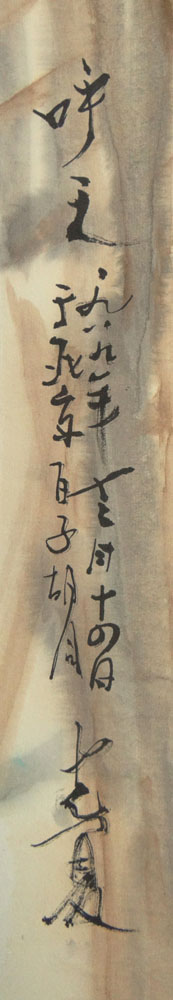 呼天
一九八九年十二月十四日
于北京百子胡同